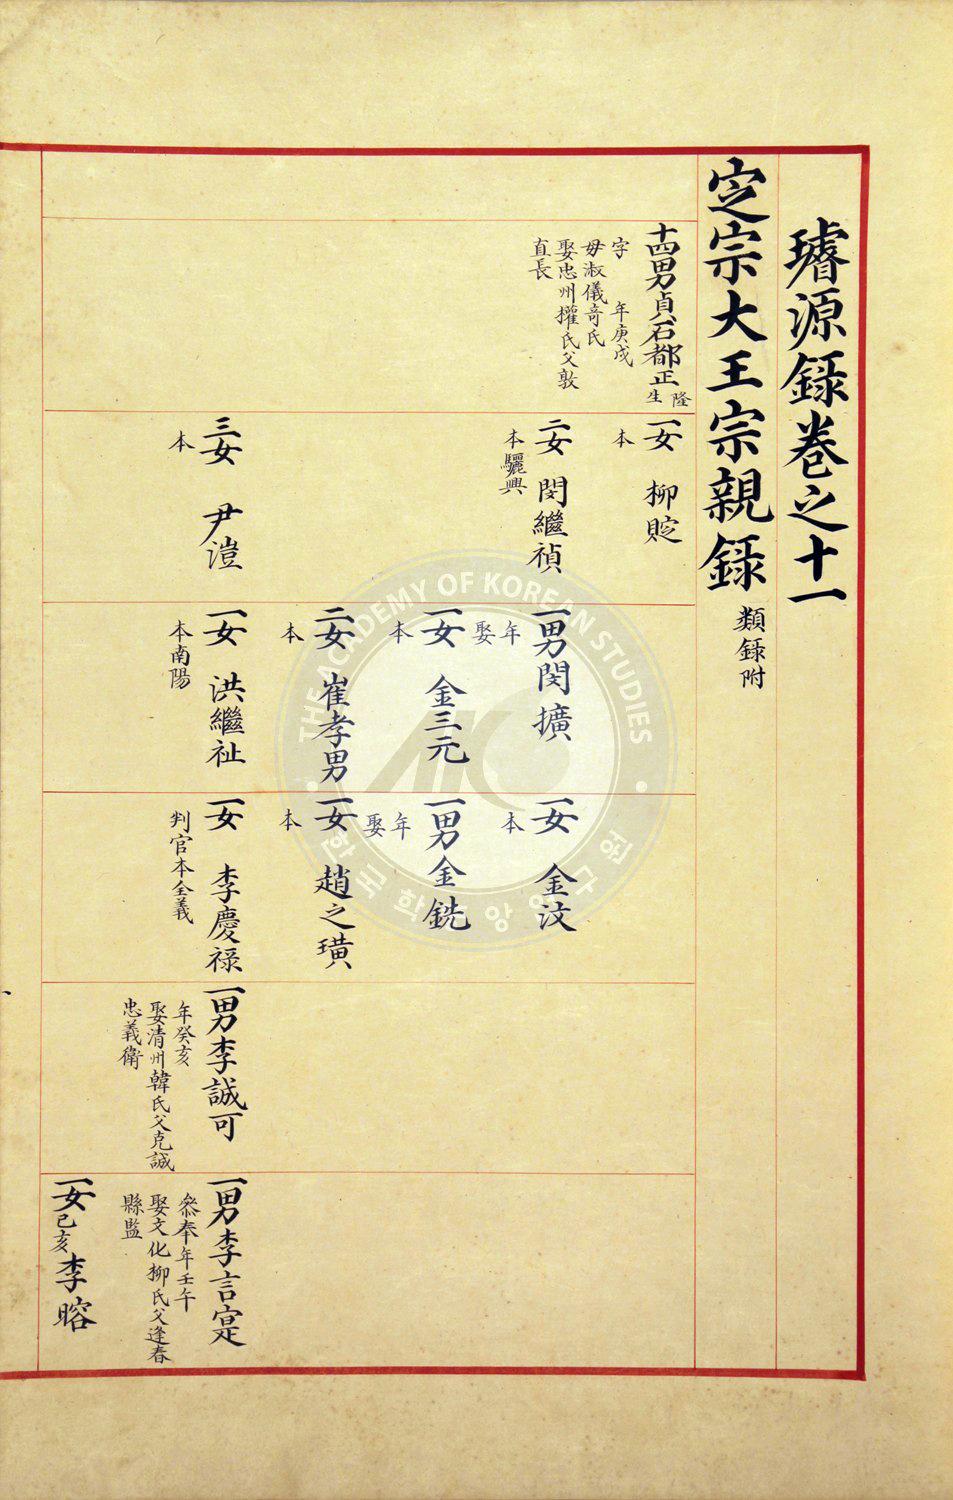 璿源錄卷之十一
定宗大王宗親錄
類錄附
十四男貞石都正隆生
字 年庚戌
母淑儀奇氏
娶忠州權氏父敦
直長
一女 柳貶
本
二女 閔繼禎
本驪興
三女 尹塏
本
一男閔擴
年
娶
一女 金三元
本
二女 崔孝男
本
一女 洪繼祉
本南陽
一女 金汶
本
一男金銑
年
娶
一女 趙之璜
本
一女 李慶祿
判官本全義
一男李誠可
年癸亥
娶清州韓氏父克誠
忠義衛
一男李言寔
叅奉年壬午
娶文化柳氏父逢春
縣監
一女己亥李瑢
THE ACADEMY OF KOREAN STUDIES
한국학중앙연구원